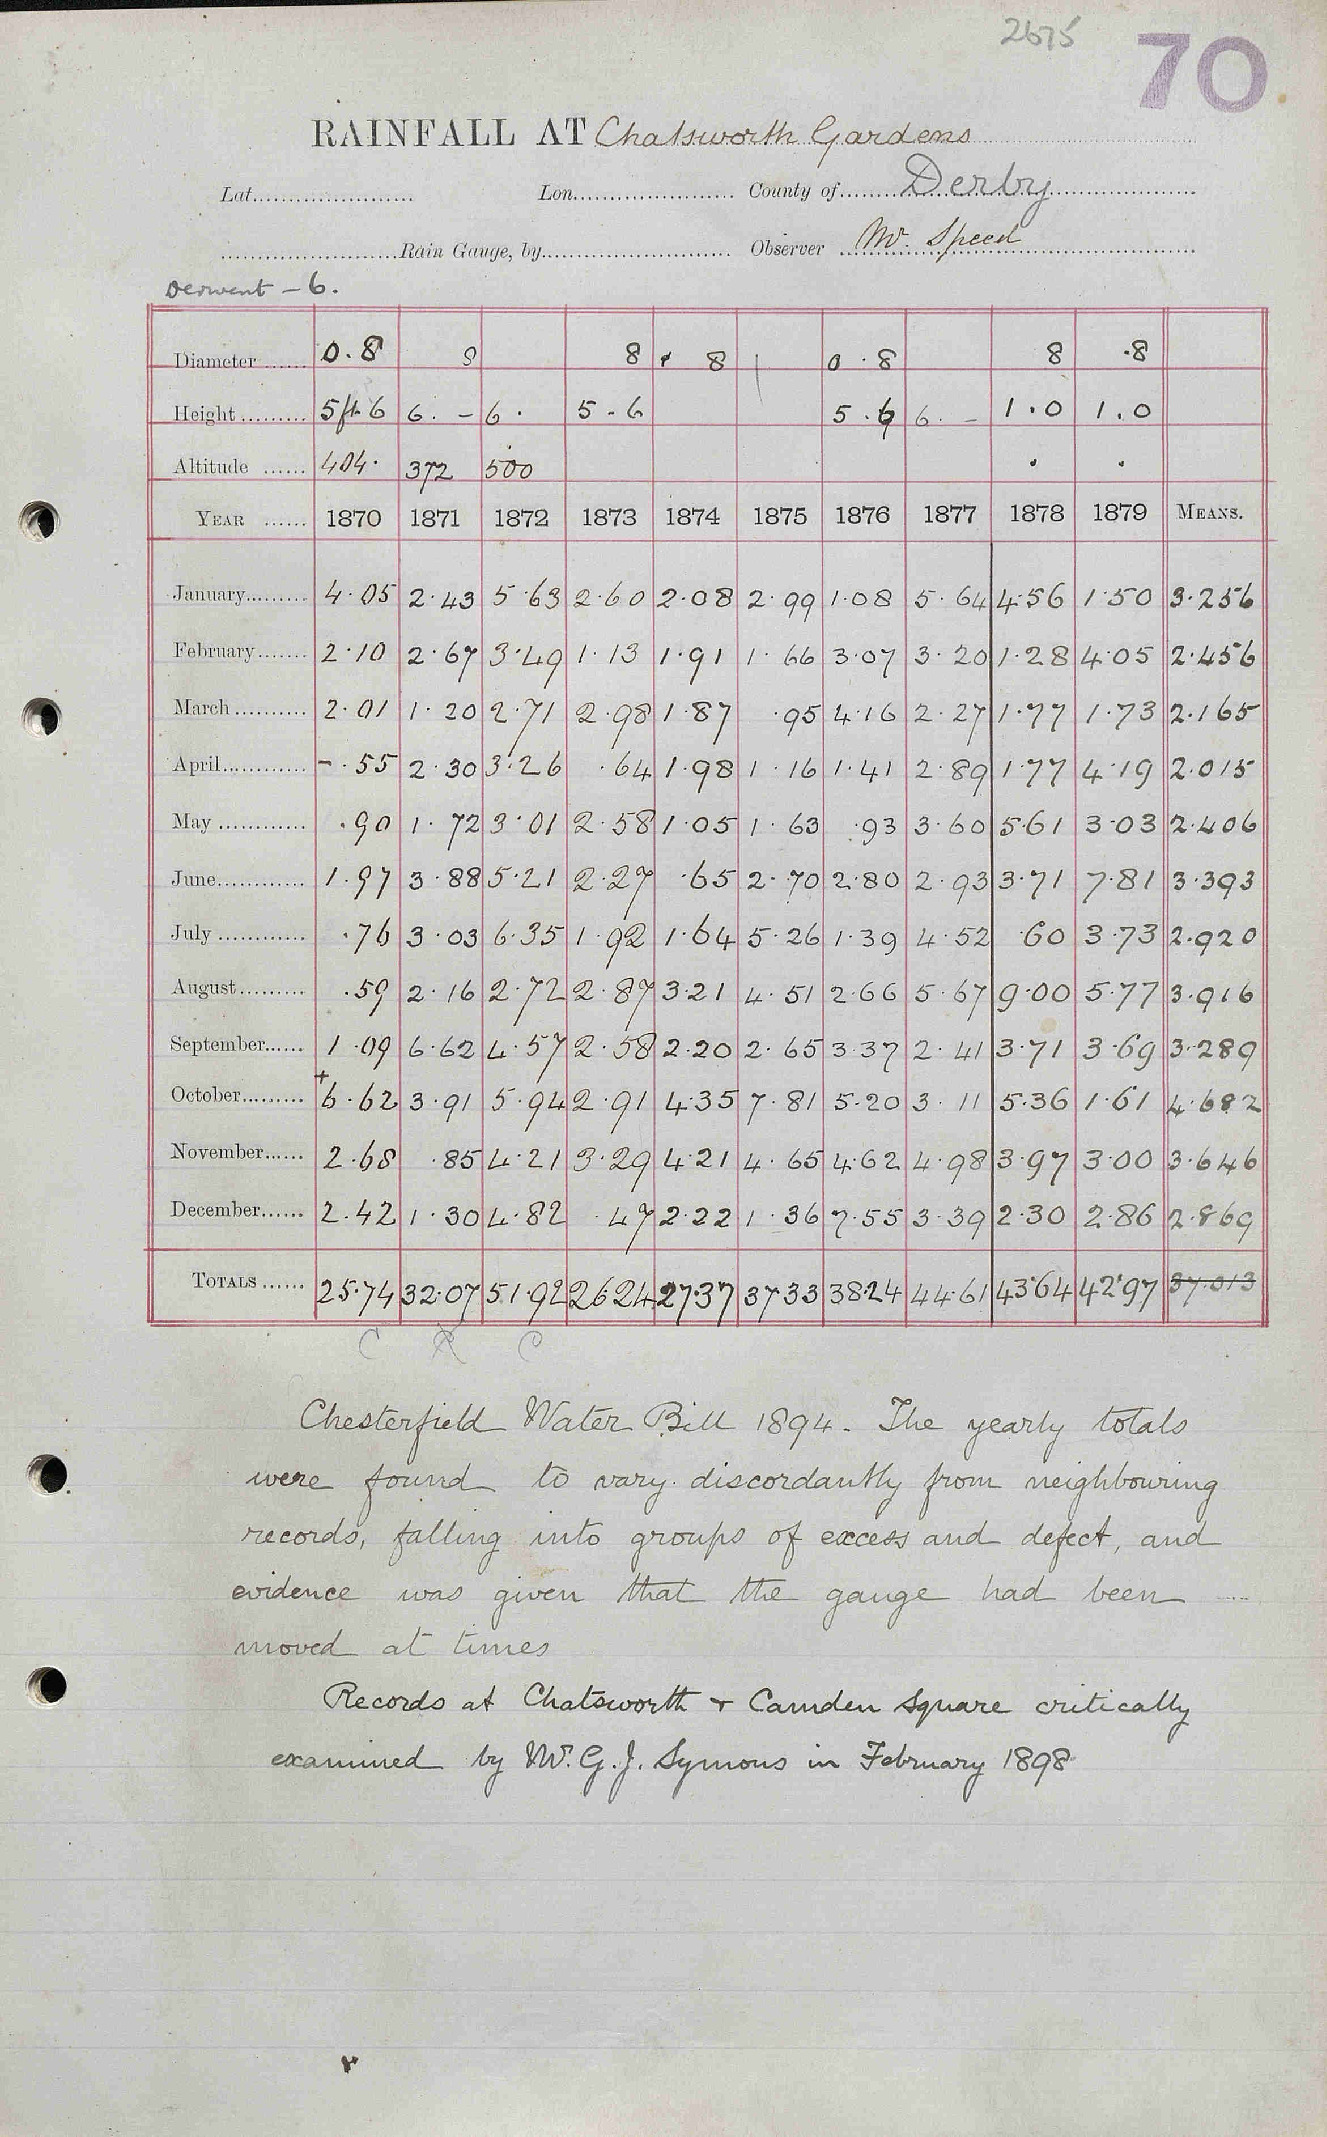 2675 70
RAINFALL AT Chatsworth Gardens
Lat. Lon. County of Derby
Rain Gauge, by Observer Mr. Speed
Derwent - 6.
Diameter 0.8 8 8 8 0.8 8 .8
Height 5ft.6 6.- 6. 5.6 5.6 6.- 1.0 1.0
Altitude 404. 372 500
YEAR 1870 1871 1872 1873 1874 1875 1876 1877 1878 1879 MEANS.
January 4.05 2.43 5.63 2.60 2.08 2.99 1.08 5.64 4.56 1.50 3.256
February 2.10 2.67 3.49 1.13 1.91 1.66 3.07 3.20 1.28 4.05 2.456
March 2.01 1.20 2.71 2.98 1.87 .95 4.16 2.27 1.77 1.73 2.165
April -.55 2.30 3.26 .64 1.98 1.16 1.41 2.89 1.77 4.19 2.015
May .90 1.72 3.01 2.58 1.05 1.63 .93 3.60 5.61 3.03 2.406
June 1.97 3.88 5.21 2.27 .65 2.70 2.80 2.93 3.71 7.81 3.393
July .76 3.03 6.35 1.92 1.64 5.26 1.39 4.52 .60 3.73 2.920
August .59 2.16 2.72 2.87 3.21 4.51 2.66 5.67 9.00 5.77 3.916
September 1.09 6.62 4.57 2.58 2.20 2.65 3.37 2.41 3.71 3.69 3.289
October +6.62 3.91 5.94 2.91 4.35 7.81 5.20 3.11 5.36 1.61 4.682
November 2.68 .85 4.21 3.29 4.21 4.65 4.62 4.98 3.97 3.00 3.646
December 2.42 1.30 4.82 .47 2.22 1.36 7.55 3.39 2.30 2.86 2.869
TOTALS 25.74 32.07 51.92 26.24 27.37 37.33 38.24 44.61 43.64 42.97 37.013
C C
Chesterfield Water Bill 1894. The yearly totals
were found to vary discordantly from neighbouring
records, falling into groups of excess and defect, and
evidence was given that the gauge had been
moved at times
Records at Chatsworth & Camden Square critically
examined by Mr. G. J. Symons in February 1898